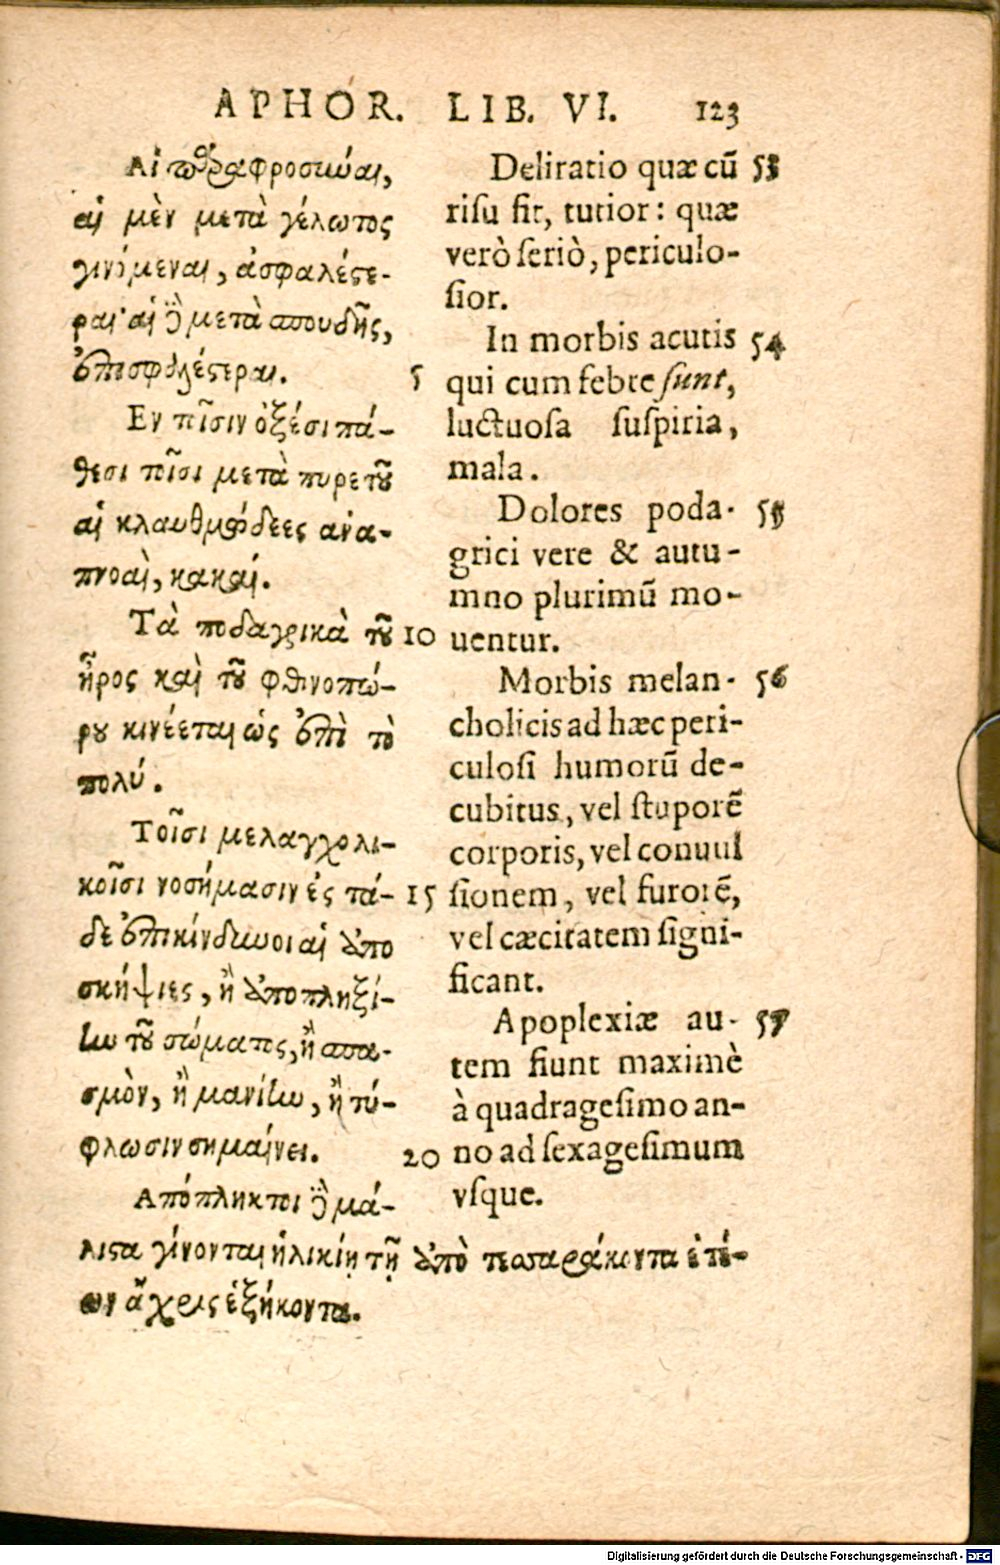 APHOR. LIB. VI. 123
Αἱ παραφροσύναι,
αἱ μὲν μετὰ γέλωτος
γινόμεναι, ἀσφαλέστε-
ραι· αἱ δὲ μετὰ σπουδῆς,
ἐπισφαλέστεραι. 5
Εν πᾶσιν ὀξέσι πά-
θεσι τοῖσι μετὰ πυρετοῦ
αἱ κλαυθμώδεες ἀνα-
πνοαὶ, κακαί.
Τὰ ποδαγρικὰ τοῦ 10
ἦρος καὶ τοῦ φθινοπώ-
ρου κινέεται ὡς ἐπὶ τὸ
πολύ.
Τοῖσι μελαγχολι-
κοῖσι νοσήμασιν ἐς τά- 15
δε ἐπικίνδυνοι αἱ ἀπο
σκήψιες, ἢ ἀποπληξί-
ην τοῦ σώματος, ἢ σπα-
σμὸν, ἢ μανίην, ἢ τύ-
φλωσιν σημαίνει. 20
Απόπληκτοι δὲ μά-
λιστα γίνονται ἡλικίῃ τῇ ἀπὸ τεσσαράκοντα ἐτέ-
ων ἄχρις ἑξήκοντα.
Deliratio quæ cū 53
risu sit, tutior: quæ
verò seriò, periculo-
sior.
In morbis acutis 54
qui cum febre sunt,
luctuosa suspiria,
mala.
Dolores poda- 55
grici vere & autu-
mno plurimū mo-
uentur.
Morbis melan- 56
cholicis ad hæc peri-
culosi humorū de-
cubitus, vel stuporē
corporis, vel conuul
sionem, vel furorē,
vel cæcitatem signi-
ficant.
Apoplexiæ au- 57
tem fiunt maximè
à quadragesimo an-
no ad sexagesimum
vsque.
Digitalisierung gefördert durch die Deutsche Forschungsgemeinschaft - DFG